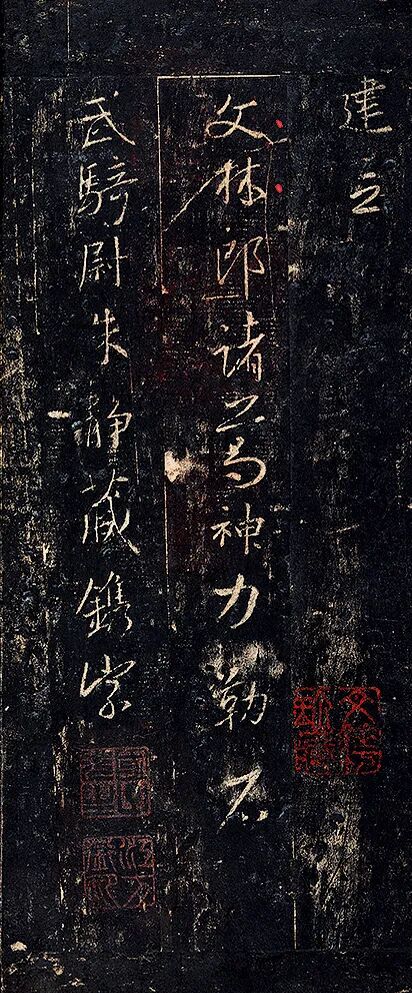 建立
文林郎諸葛神力勒石
武騎尉朱静藏鐫字